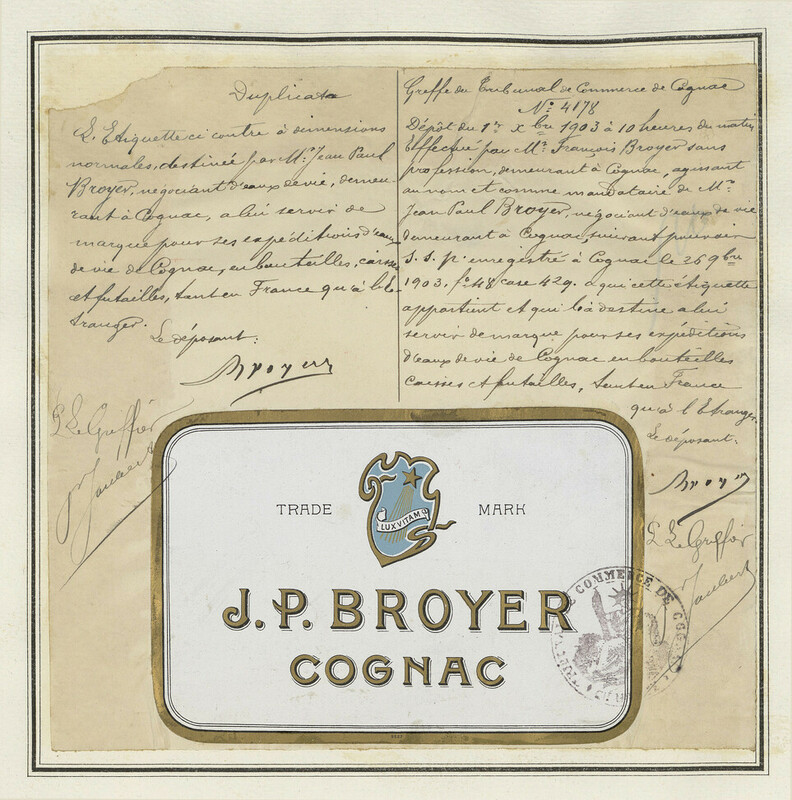 Duplicata
L'Etiquette ci contre à dimensions
normales, destinée par Mr. Jean Paul
Broyer, négociant d'eaux de vie, demeu-
rant à Cognac, a lui servir de
marque pour ses expéditions d'eaux
de vie de Cognac, en bouteilles, caisses
et futailles, tant en France qu'à l'é-
tranger.
Le déposant:
Broyer
P. Le Greffier
Jaubert
Greffe du Tribunal de Commerce de Cognac
No 4178
Dépôt du 1er Xbre 1903 à 10 heures du matin
Effectué par Mr. François Broyer sans
profession, demeurant à Cognac, agissant
au nom et comme mandataire de Mr.
Jean Paul Broyer, négociant d'eaux de vie
demeurant à Cognac, suivant pouvoir
s. s. p. enregistré à Cognac le 26 9bre
1903. fo 48 case 429. a qui cette étiquette
appartient et qui l'a destine a lui
servir de marque pour ses expéditions
d'eaux de vie de Cognac en bouteilles
caisses et futailles, tant en France
qu'à l'Etranger.
Le déposant.
Broyer
P. Le Greffier
Jaubert
TRADE MARK
LUX VITAM
J.P. BROYER
COGNAC
COMMERCE DE COGNAC